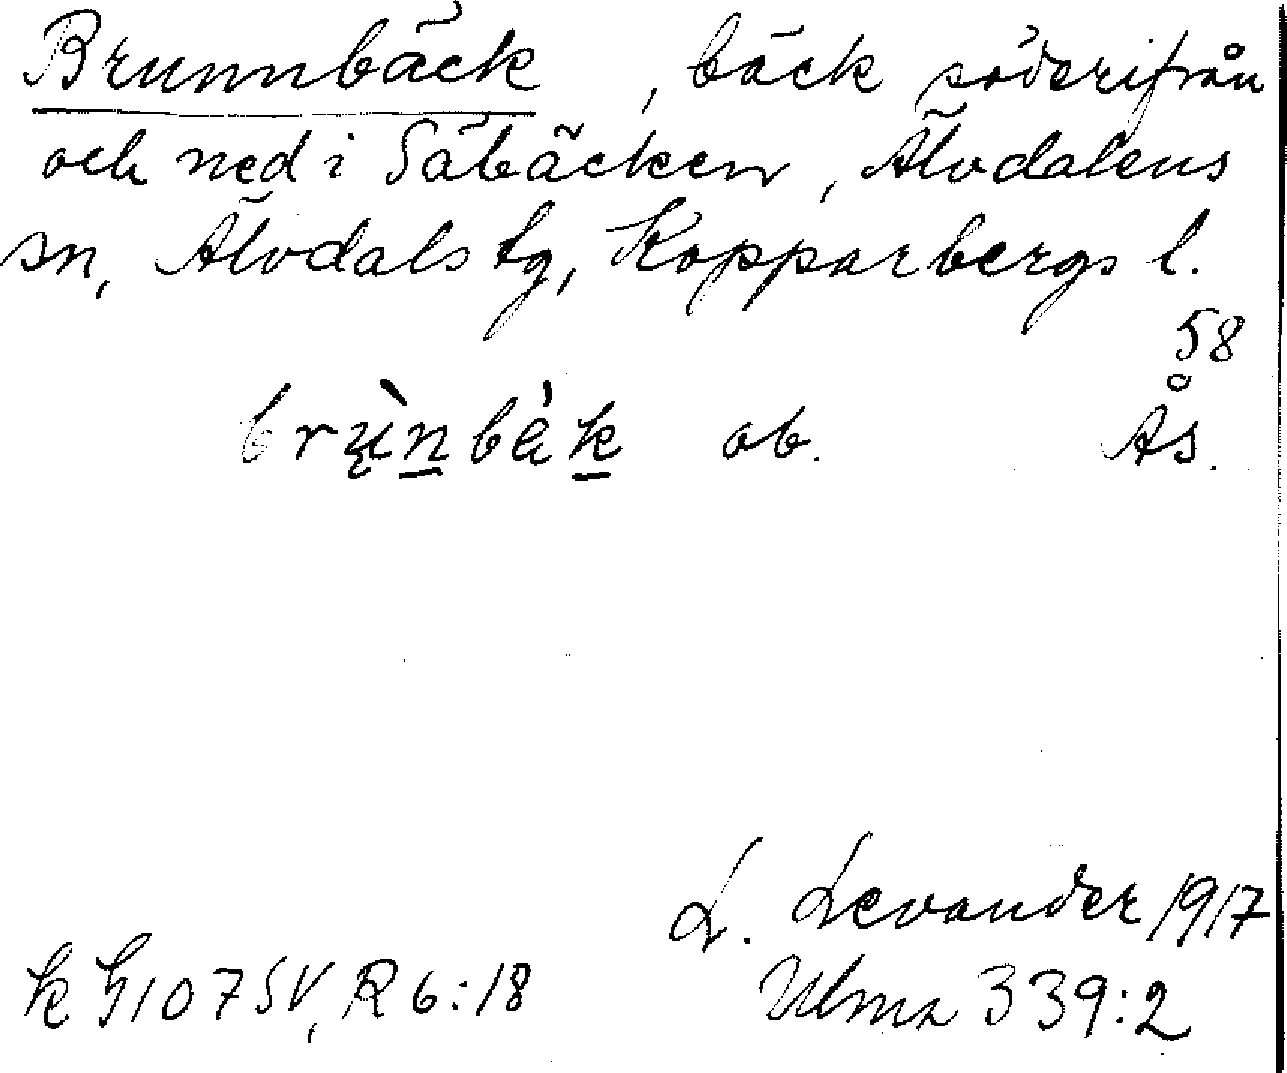 Brunnbäck, bäck söderifrån
och ned i Säbäcken, Älvdalens
sn, Älvdals tg, Kopparbergs l.
58
brụ̀n̲bàk̲ ob. Ås.
L. Levander 1917
k h 107 SV, R 6:18 Ulma 339:2